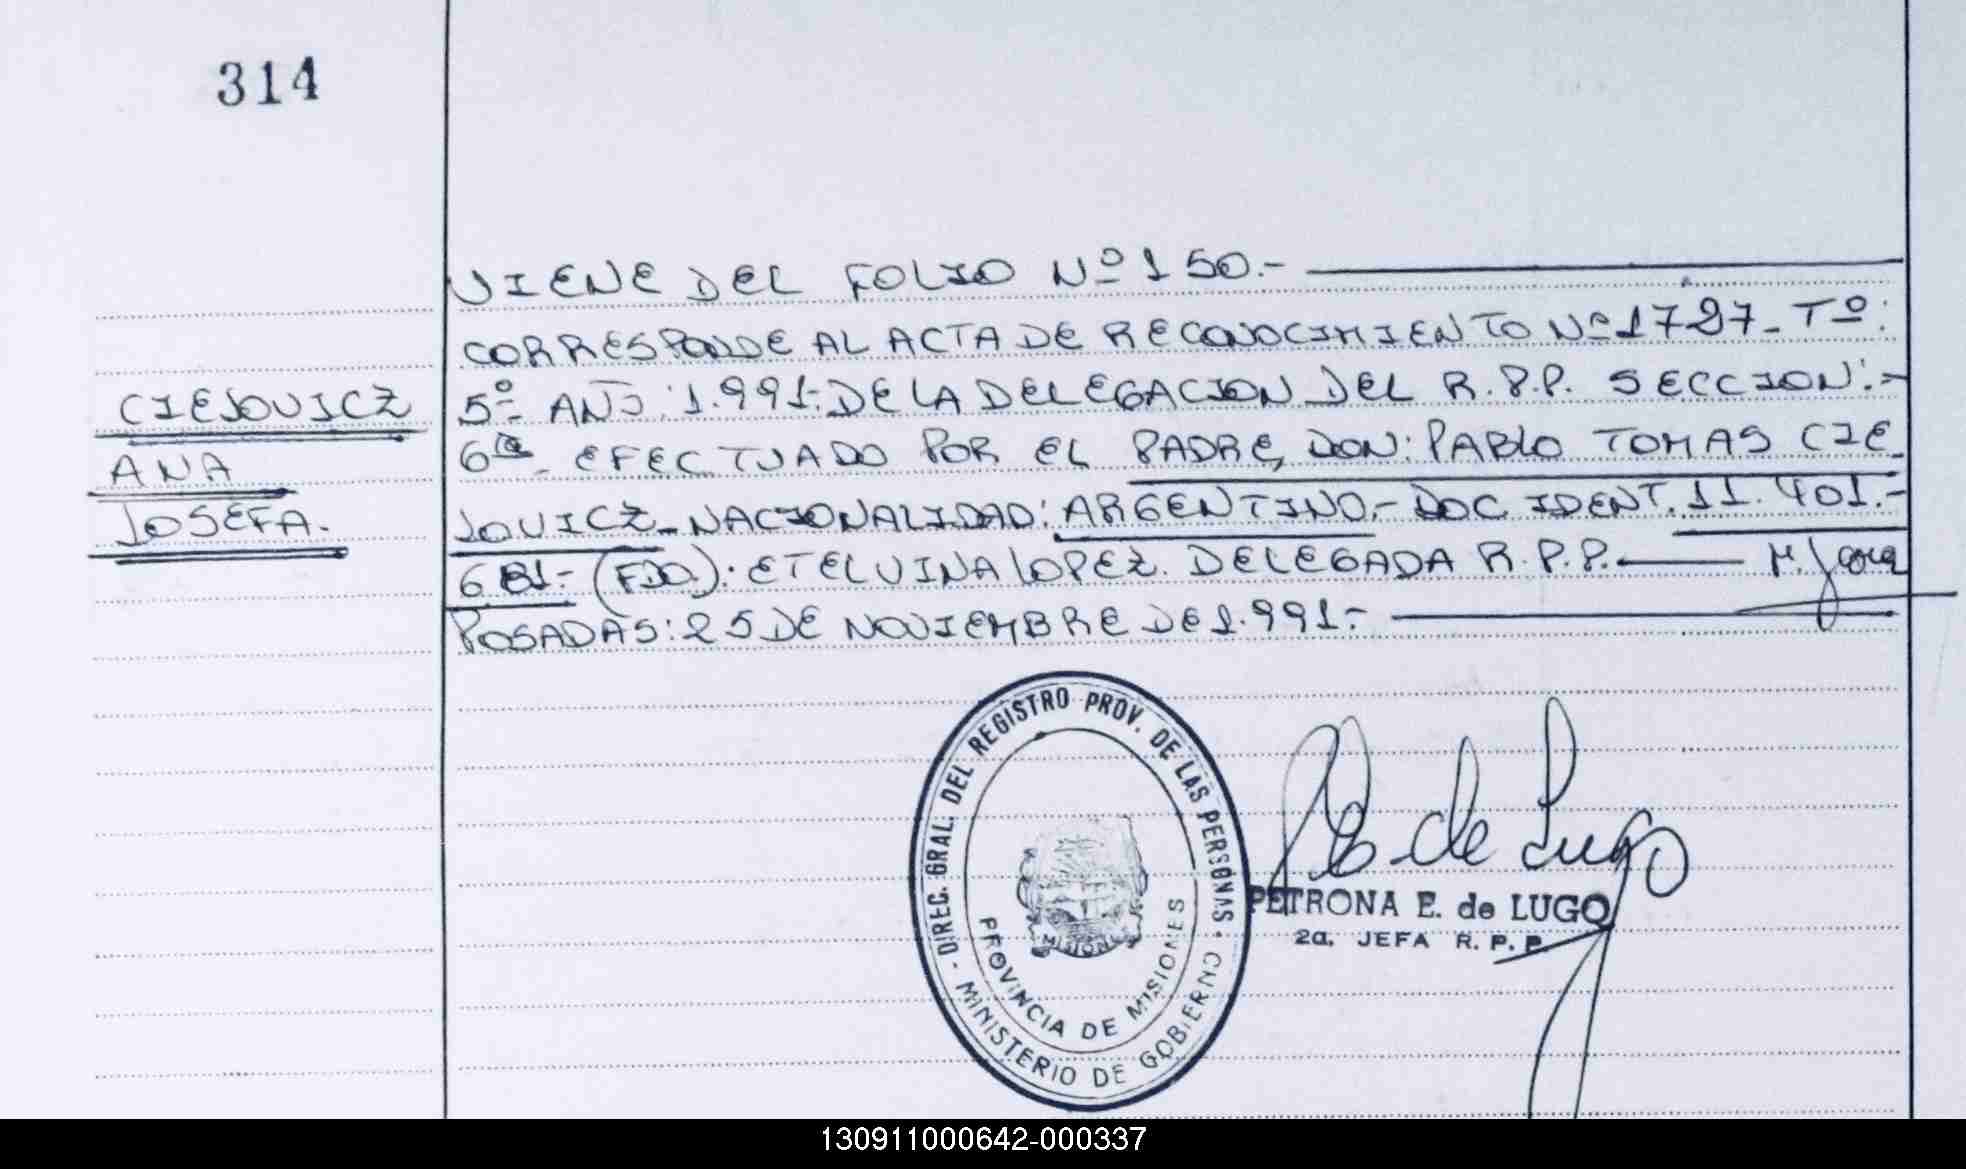 314
VIENE DEL FOLIO Nº 150.-
CORRESPONDE AL ACTA DE RECONOCIMIENTO Nº 1727- Tº:
5º- AÑO: 1.991.- DE LA DELEGACION DEL R.P.P. SECCION:-
6ª- EFECTUADO POR EL PADRE, DON: PABLO TOMAS CIE
JOVICZ- NACIONALIDAD: ARGENTINO.- DOC. IDENT. 11.401.-
681- (FDO.): ETELVINA LOPEZ. DELEGADA R.P.P.
POSADAS: 25 DE NOVIEMBRE DE 1.991.-
CIEJOVICZ
ANA
JOSEFA.
DIREC. GRAL. DEL REGISTRO PROV. DE LAS PERSONAS
MINISTERIO DE GOBIERNO
PROVINCIA DE MISIONES
MISIONES
P E de Lugo
PETRONA E. de LUGO
2a. JEFA R.P.P.
130911000642-000337